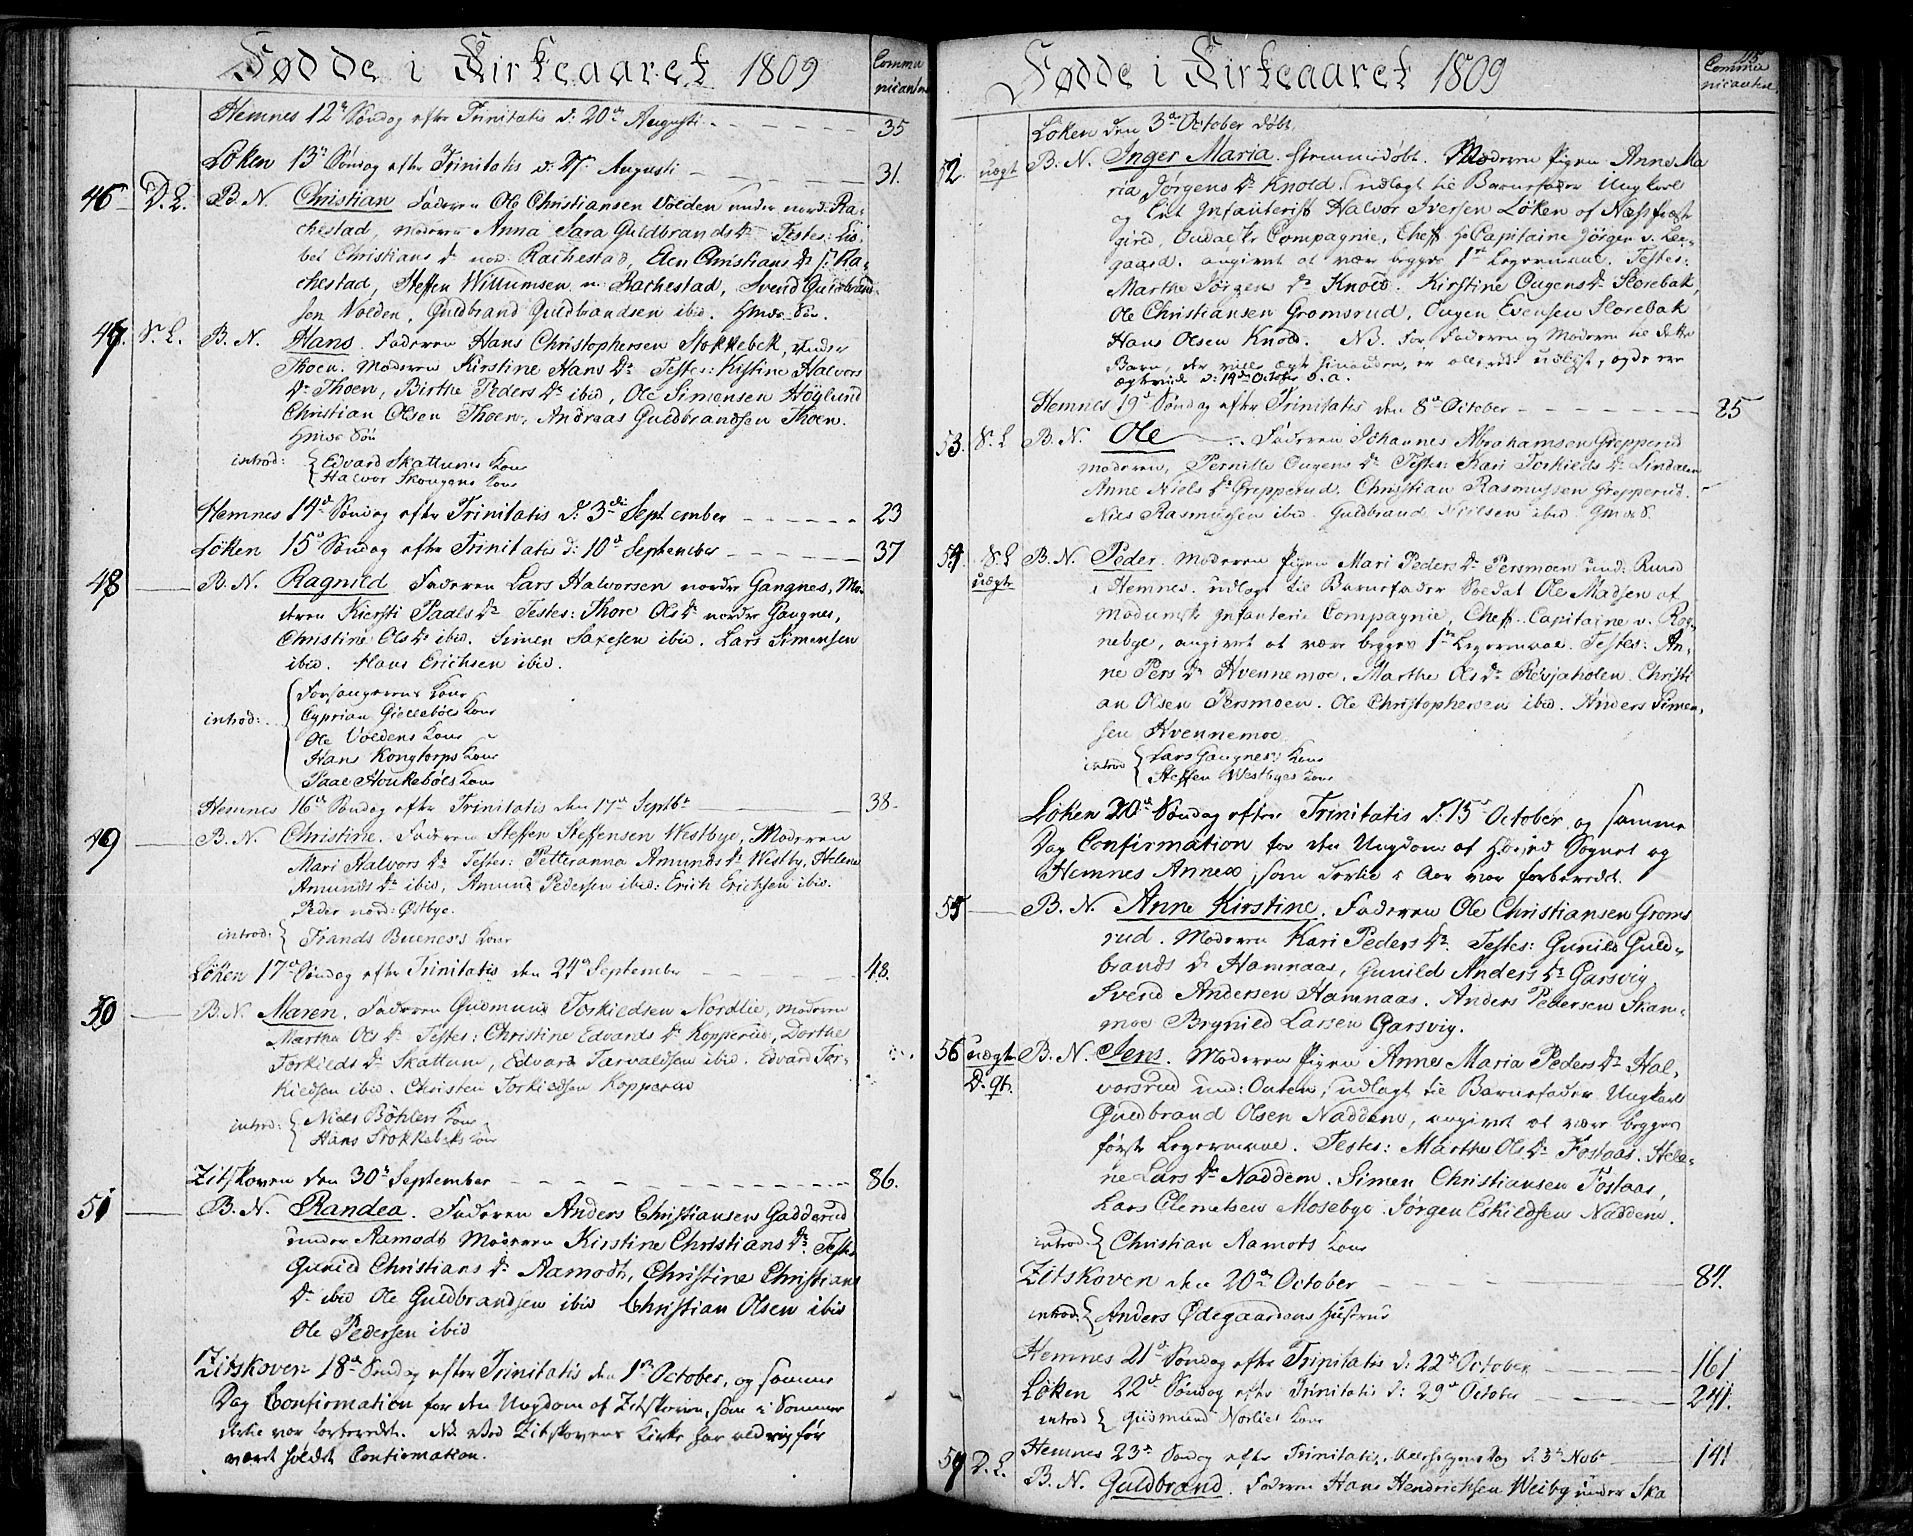 Fødde i Kirkeaaret 1809
Commu
nicanter
Hemnes 12te Søndag efter Trinitatis d: 20de Augusti 35
Løken 13de Søndag efter Trinitatis d: 27 Augusti 31.
46 D. L. B. N. Christian Faderen Ole Christiansen Volden under nord: Ra-
chestad, Moderen Anna Sara Guldbrands Dr Testes: Lis-
bet Christians Dr nor: Rachestad, Elen Christians Dr s: Ra-
chestad, Steffen Willumsen n: Rachestad, Svend Guldbrand-
sen Volden, Guldbrand Guldbrandsen ibid.
47. S. L. B. N. Hans. Faderen Hans Christophersen Stokkebek, under
Thoen. Moderen Kirstine Hans Dr Testes: Kistine Halvors
Dr Thoen, Birthe Peders Dr ibid, Ole Simensen Høylund
Christian Olsen Thoen, Andreas Guldbrandsen Thoen.
introd: Edvard Skattums Kone
Halvor Skougens Kone
Hemnes 14de Søndag efter Trinitatis d: 3die September 23
Løken 15de Søndag efter Trinitatis d: 10de September 37
48 B. N. Ragnild Faderen Lars Halvorsen nordre Gangnes, Mo-
deren Kiersti Paals Dr Testes: Thore Ols Dr nordre Gangnes,
Christine Ols Dr ibid. Simen Saxesen ibid. Lars Simensen
ibid. Hans Erichsen ibid.
introd: Forsangerens Kone
Cyprian Giellebøls Kone
Ole Voldens Kone
Hans Kongtorps Kone
Paal Houkebøls Kone
Hemnes 16de Søndag efter Trinitatis den 17de Septbr 38.
49 B. N. Christine. Faderen Steffen Steffensen Westbye, Moderen
Mari Halvors Dr Testes: Petteranna Amunds Dr Westby, Helene
Amunds Dr ibid, Amund Pedersen ibid: Erich Erichsen ibid.
Peder nord: Østbye.
introd: Trands Buenes's Kone
Løken 17de Søndag efter Trinitatis den 24de September 48.
50 B. N. Maren. Faderen Gudmund Torkildsen Nordlie, Moderen
Marthe Ols Dr Testes: Christine Edvards Dr Kopperud, Dorthe
Torkilds Dr Skattum, Edvard Tarvaldsen ibid. Edvard Tor-
kildsen ibid. Christen Torkildsen Kopperud
introd: Niels Bøhlers Kone
Hans Stokkebeks Kone
Zitskoven den 30te September 86.
51 B. N. Randea. Faderen Anders Christiansen Gadderud
under Aamodt Moderen Kirstine Christians Dr. Testes
Gunild Christians Dr Aamodt, Christine Christians
Dr ibid Ole Guldbrandsen ibid Christian Olsen ibid
Ole Pedersen ibid
Zitskoven 18de Søndag efter Trinitatis den 1ste October, og samme
Dag Confirmation for den Ungdom af Zitskoven, som i Sommer
var forberedt. NB. Ved Zitskovens Kirke har aldrig før
været holdet Confirmation.
Fødde i Kirkeaaret 1809
115
Commu
nicantere
Løken den 3de October døbt.
52. uægt B. N. Inger Maria. hiemmedøbt. Moderen Pigen Anne Ma
ria Jørgens Dr Knold. udlagt til Barnefader Ungkarl
og Let Infanterist Halvor Iversen Løken af
Compagnie, Cheff Hr Capitaine Jørgen v. Ler-
gaard. angivet at være begges 1ste Leiermaal. Testes:
Marthe Jørgens Dr Knold. Kirstine Ougens Dr Storebak,
Ole Christiansen Gromsrud, Ougen Evensen Storebak
Hans Olsen Knold. NB. For Faderen og Moderen til dette
Barn, der ville ægte hinanden, er allerede udlyst, og de ere
ægteviede d: 19de October d. a.
Hemnes 19de Søndag efter Trinitatis den 8de October 85
53. S. L B. N. Ole Faderen Johannes Abrahamsen Grepperud
Moderen, Pernille Ougens Dr Testes: Kari Torkilds Dr Lindalen
Anne Niels Dr Grepperud. Christian Rasmussen Grepperud.
Niels Rasmussen ibid Guldbrand Nielsen ibid
54 S. L uægte B. N. Peder. Moderen Pigen Mari Peders Dr Persmoen und: Ruud
i Hemnes. udlagt til Barnefader Soldat Ole Madsen af
Modumsk Infanterie Compagnie, Cheff. Capitaine v. Rog-
nebye, angivet at være begges 1ste Leiermaal. Testes: An-
ne Pers Dr Hvennemoe. Marthe Ols Dr Revjaholen. Christi
an Olsen Persmoen. Ole Christophersen ibid. Anders Simen-
sen Hvennemoe
introd Lars Gangnes Kone
Steffen Westbyes Kone
Løken 20de Søndag efter Trinitatis d: 15de October og samme
Dag Confirmation for den Ungdom af Sognet og
Hemnes Annex, som Aar var forberedt.
55 B. N. Anne Kirstine. Faderen Ole Christiansen Groms
rud. Moderen Kari Peders Dr. Testes: Gunild Guld-
brands Dr Hamnaas, Gunild Anders Dr Garsvig
Svend Andersen Hamnaas. Anders Pedersen Skam-
moe Brynild Larsen Garsvig.
56 uægte D. gt. B. N. Jens. Moderen Pigen Anne Maria Peders Dr Hal-
vorsrud und: Outen, udlagt til Barnefader Ungkarl
Guldbrand Olsen Naddem, angivet at være begges
første Leiermaal. Testes: Marthe Ols Dr Fostaas. Hele-
ne Lars Dr Naddem. Simen Christiansen Fostaas,
Lars Clemetsen Mosebye Jørgen Eskildsen Naddem.
introd. Christian Aamots Kone
Zitskoven den 20de October 84.
introd: Anders Ødegaardens Hustrue
Hemnes 21de Søndag efter Trinitatis d: 22de October 161
Løken 22de Søndag efter Trinitatis d: 29de October 241.
introd Gudmund Norlies Kone
Hemnes 23de Søndag efter Trinitatis, Allehelgens Dag d 5te Novbr 141
57 D. L. B. N. Guldbrand. Faderen Hans Hendrichsen Weiby under Ska